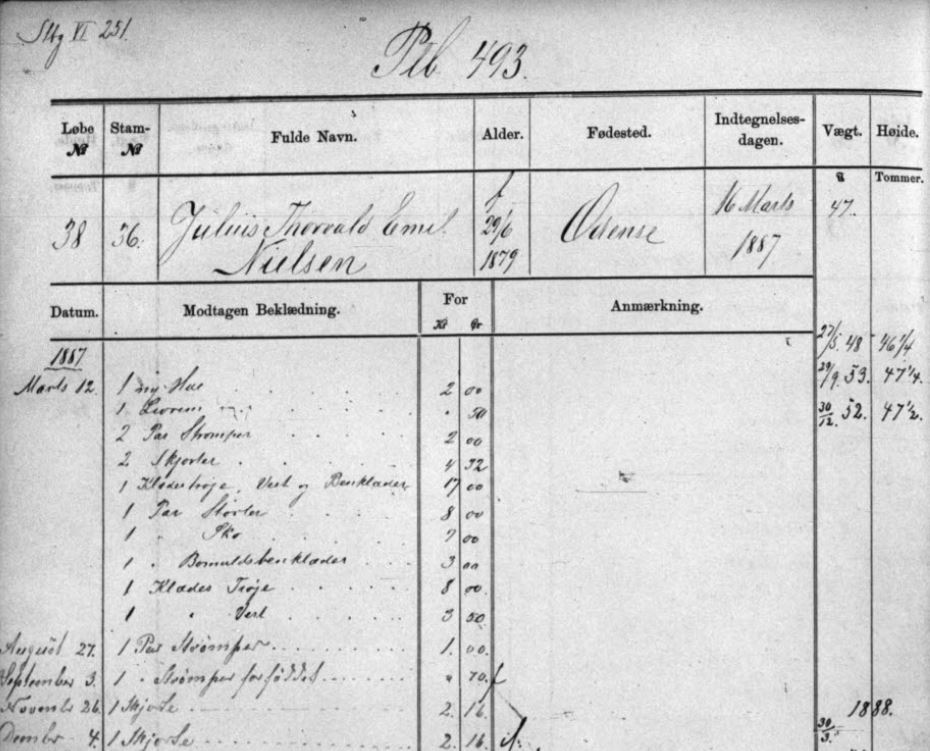 Stbg VI 251.
Ptb 493.
Løbe № Stam- № Fulde Navn. Alder. Fødested. Indtegnelses- dagen. Vægt. Høide.
Tommer.
38 36. Julius Thorvald Emil Nielsen f 29/6 1879 Odense 16 Marts 1887 47.
Datum. Modtagen Beklædning. For Kr Ør Anmærkning.
27/5. 48 46 1/4
1887
29/9. 53. 47 1/4.
Marts 12. 1 ny Hue 2 00
30/12. 52. 47 1/2.
1 50
2 Par Strømper 2 00
2 Skjorter 4 32
1 Klædestrøje, Vest og Benklæder 17 00
1 Par Støvler 8 00
1 " Sko 7 00
1 " Bomuldsbenklæder 3 00
1 Klædes Trøje 8 00
1 " Vest 3 50
August 27. 1 Par Strømper 1. 00.
September 3. 1 " Strømper forføddet " 70.
Novembr 26. 1 Skjorte 2. 16.
1888.
4. 1 Skjorte 2. 16.
30/3.